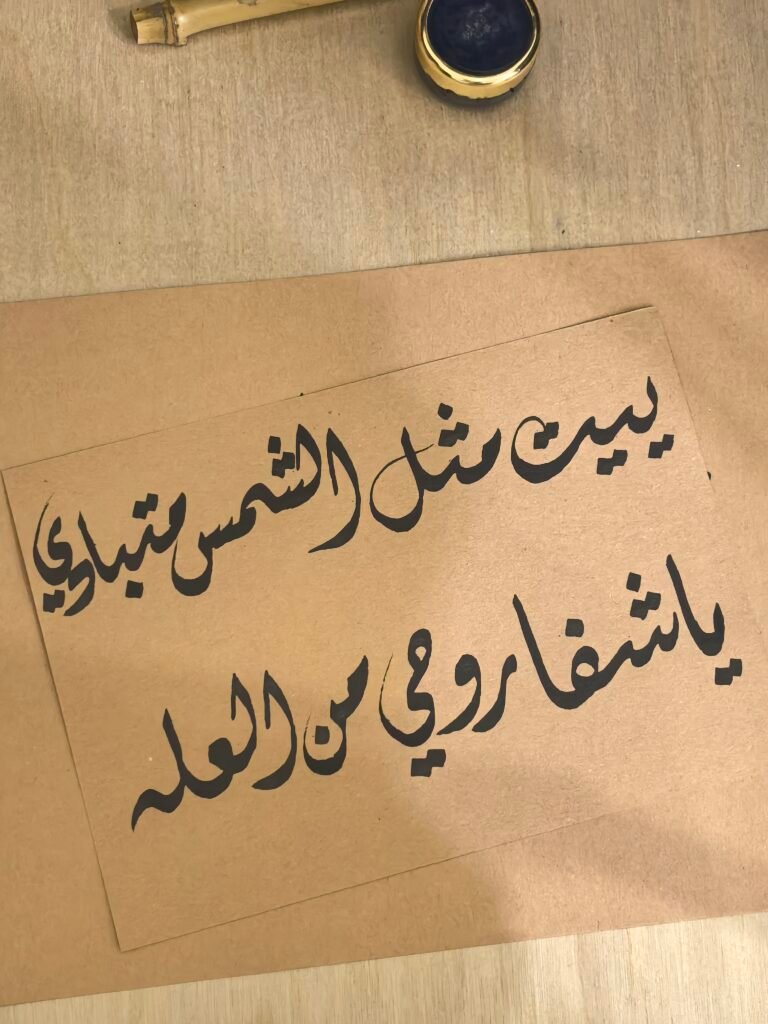 ييت مثل الشمس متباري
يا شفا روحي من العله